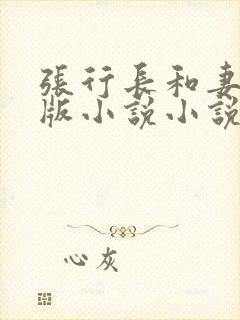 張行長和妻
版小說小說
心灰